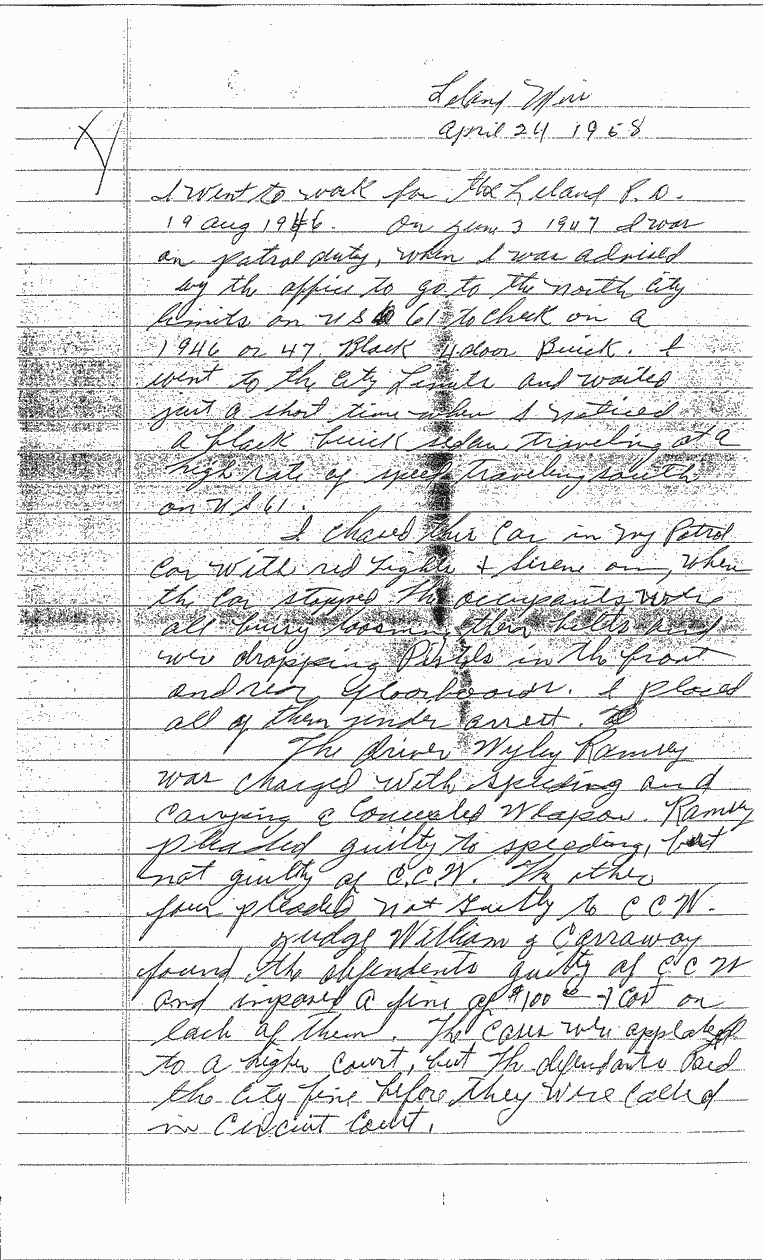 Leland Miss
April 24 1958
I went to work for the Leland P.D.
19 Aug 1946. On June 3 1947 I was
on patrol duty, when I was advised
by the office to go to the north City
limits on US 61 to check on a
1946 or 47 Black 4 door Buick. I
went to the City Limits and waited
just a short time when I noticed
a black buick sedan traveling at a
high rate of speed traveling south
on US 61.
I chased this Car in my Patrol
Car with red lights & Sirene on, when
the Car stopped the occupants were
all busy loosening their belts and
were dropping Pistols in the front
and rear floorboards. I placed
all of them under arrest.
The driver Wyley Ramsey
was charged with speeding and
Carrying a Concealed Weapon. Ramsey
pleaded guilty to speeding, but
not guilty of C.C.W. The other
four pleaded not Guilty to C C W.
Judge William G Carraway
found the defendents guilty of C C W
and imposed a fine of $100 00 & Cost on
Each of them. The Cases were
to a higher Court, but the defendants Paid
the City fine before they were Called
in Circuit Court.